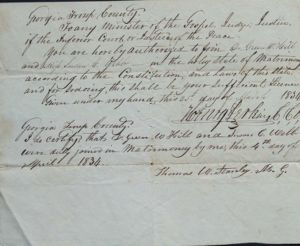 Georgia Troup County
To any Minister of the Gospel, Judge, Justice
of the Inferior Court or Justice of the Peace
You are hereby authorized to join Green W. Hill
and Susan C. in the Holy State of Matrimony
according to the Constitution and Laws of this State
and for so doing this shall be your sufficient License
Given under my hand, this day of 1834
Georgia Troup County
I do certify that Green W Hill and Susan C.
were duly joined in Matrimony by me, this 4th day of
April 1834.
Thomas W. Stanley M. G.